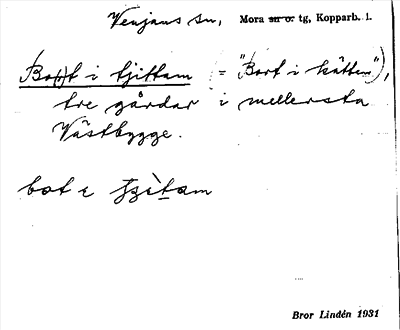 Venjans sn, Mora su o. tg, Kopparb. l.
Bo(r)t i tjittam (= "Bort i kätten"),
tre gårdar i mellersta
Västbygge.
bot i
Bror Lindén 1931